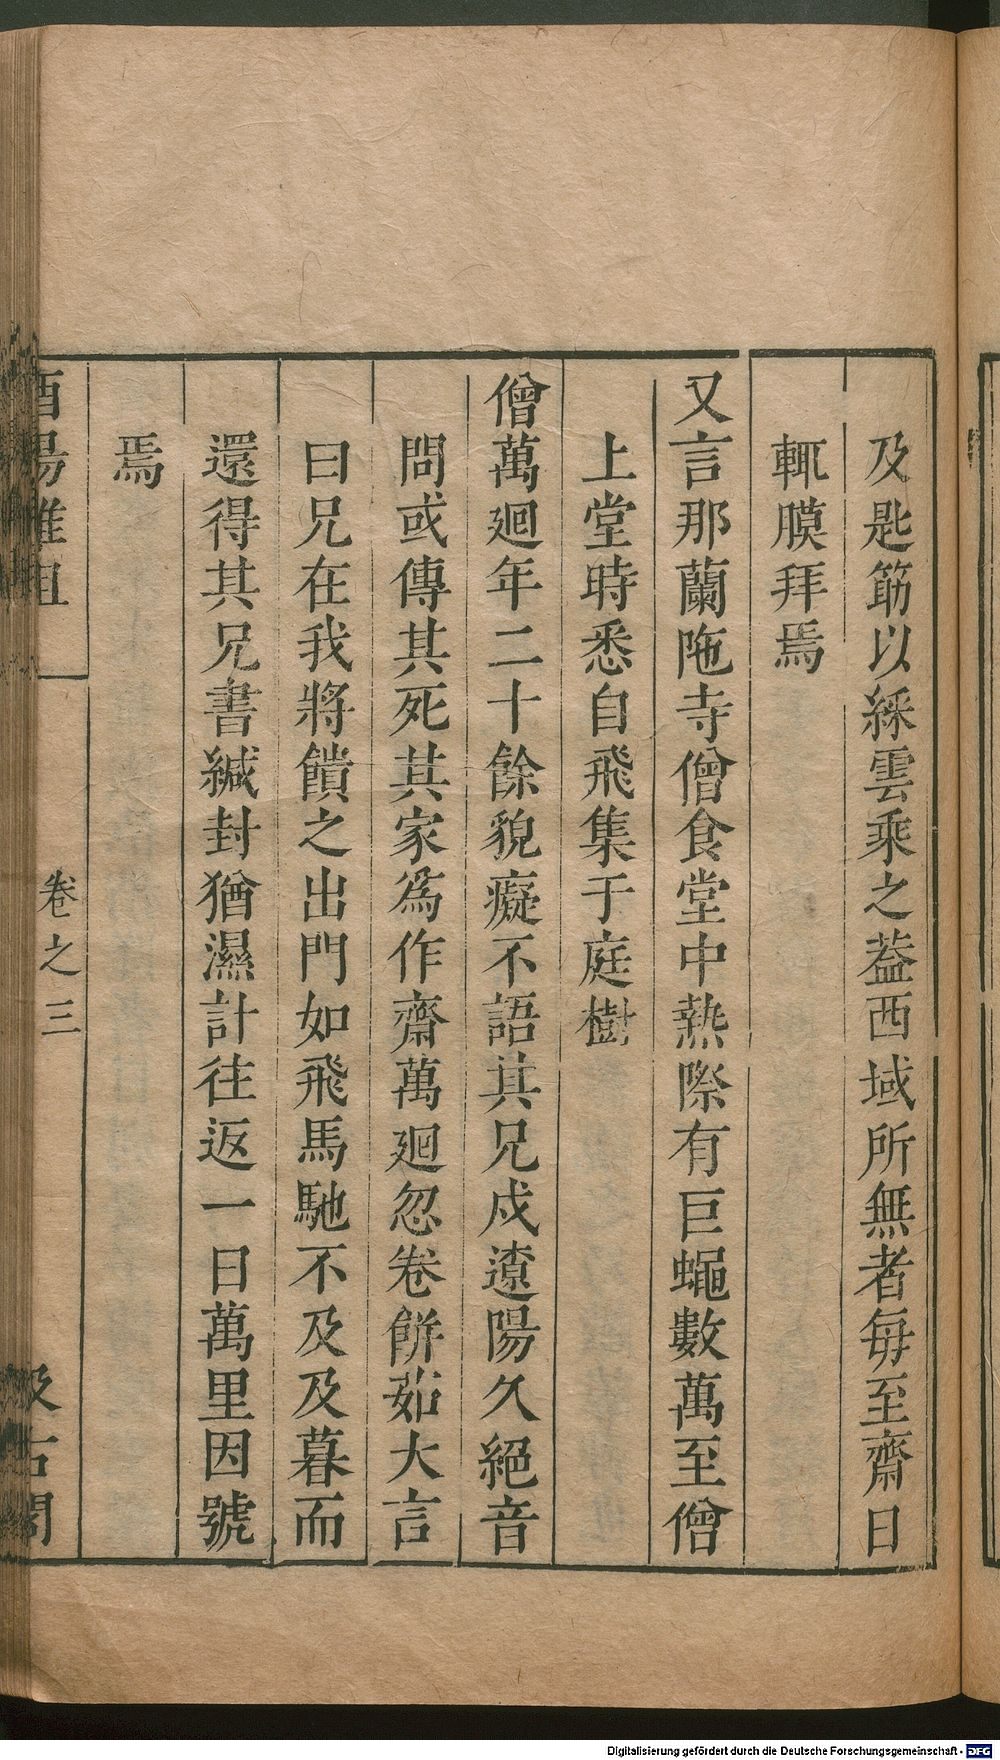 及匙筯以綵雲乘之葢西域所無者每至齋日
輒膜拜焉
又言那蘭陁寺僧食堂中熱際有巨蠅數萬至僧
上堂時悉自飛集于庭樹
僧萬廻年二十餘貌癡不語其兄戍遼陽久絕音
問或傳其死其家爲作齋萬廻忽卷餅茹大言
曰兄在我將饋之出門如飛馬馳不及及暮而
還得其兄書緘封猶濕計往返一日萬里因號
焉
酉陽雜俎
卷之三
汲古閣
Digitalisierung gefördert durch die Deutsche Forschungsgemeinschaft - DFG